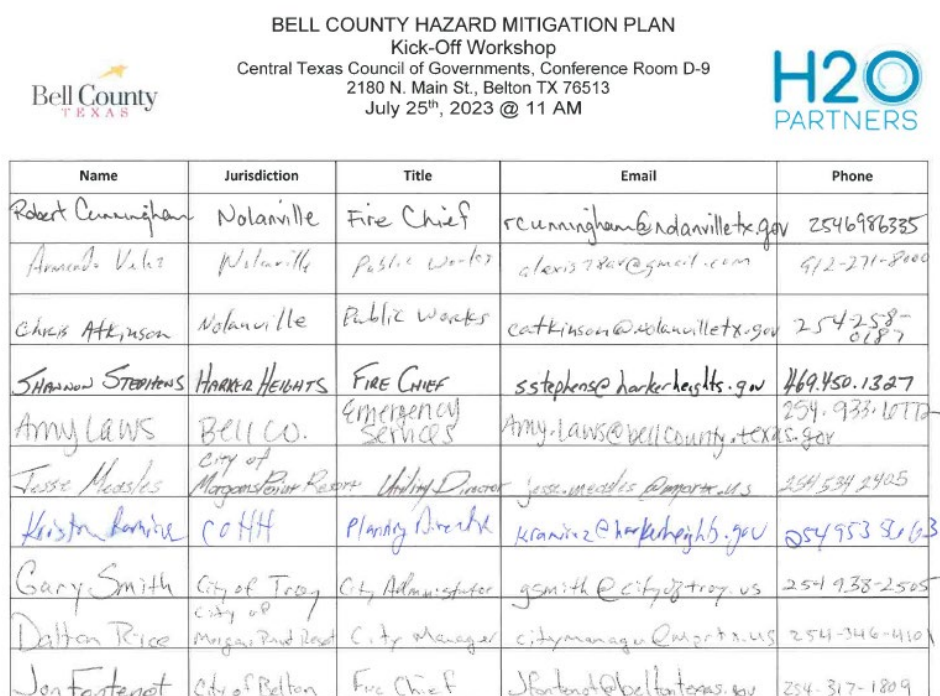 BELL COUNTY HAZARD MITIGATION PLAN
Kick-Off Workshop
Central Texas Council of Governments, Conference Room D-9
2180 N. Main St., Belton TX 76513
July 25th, 2023 @ 11 AM
Bell County
TEXAS
H2O
PARTNERS
Name Jurisdiction Title Email Phone
Robert Cunningham Nolanville Fire Chief rcunningham@nolanvilletx.gov 2546986335
Armando Velez Nolanville Public Works 912-271-8000
Chris Atkinson Nolanville Public Works catkinson@nolanvilletx.gov 254-258-
0187
SHANNON STEPHENS HARKER HEIGHTS FIRE CHIEF sstephens@harkerheights.gov 469.450.1327
Amy Laws Bell Co. Emergency
Services Amy.laws@bellcounty.texas.gov 254.933.
City of
Morgans Point Resort Jesse Measles Utility Director 254 534 2405
COHH Planning Director 254953
Gary Smith City of Troy City Administrator gsmith@cityoftroy.us 254 938-2505
City of
Dalton Rice Morgan Point Resort City Manager 254-346-4101
Jon Fontenot City of Belton Fire Chief Jfontenot@beltontexas.gov 254-317-1809